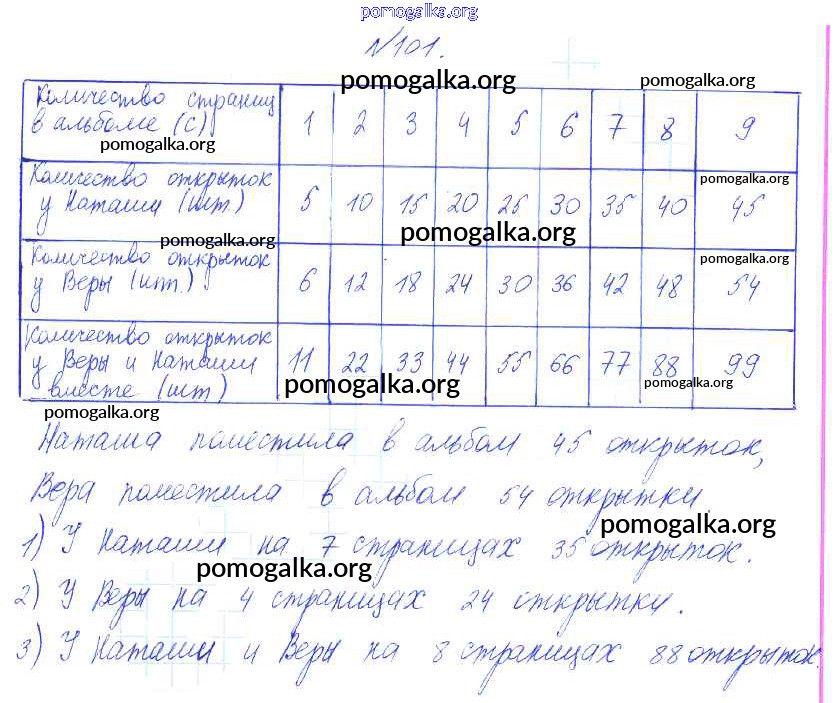 pomogalka.org
№101.
pomogalka.org pomogalka.org
Количество страниц
в альбоме (с) 1 2 3 4 5 6 7 8 9
pomogalka.org
Количество открыток pomogalka.org
у Наташи (шт.) 5 10 15 20 25 30 35 40 45
pomogalka.org pomogalka.org
Количество открыток pomogalka.org
у Веры (шт.) 6 12 18 24 30 36 42 48 54
Количество открыток
у Веры и Наташи 11 22 33 44 55 66 77 88 99
вместе (шт) pomogalka.org pomogalka.org
pomogalka.org
Наташа поместила в альбом 45 открыток,
Вера поместила в альбом 54 открытки.
pomogalka.org
1) У Наташи на 7 страницах 35 открыток.
pomogalka.org
2) У Веры на 4 страницах 24 открытки.
3) У Наташи и Веры на 8 страницах 88 открыток.